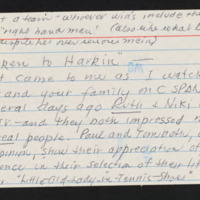 t a team - whoever wins include the
"right hand men" (also
people has new
to Harkin" —
t came to me as I watch
and your family on C SPAN
eral days ago Ruth & Niki,
TV - and they both impressed m
real people. Paul and Tom both,
pinion, show their appreciation of
ence in their selection of their li
"Little-Old-Lady-in-Tennis-Shoes"